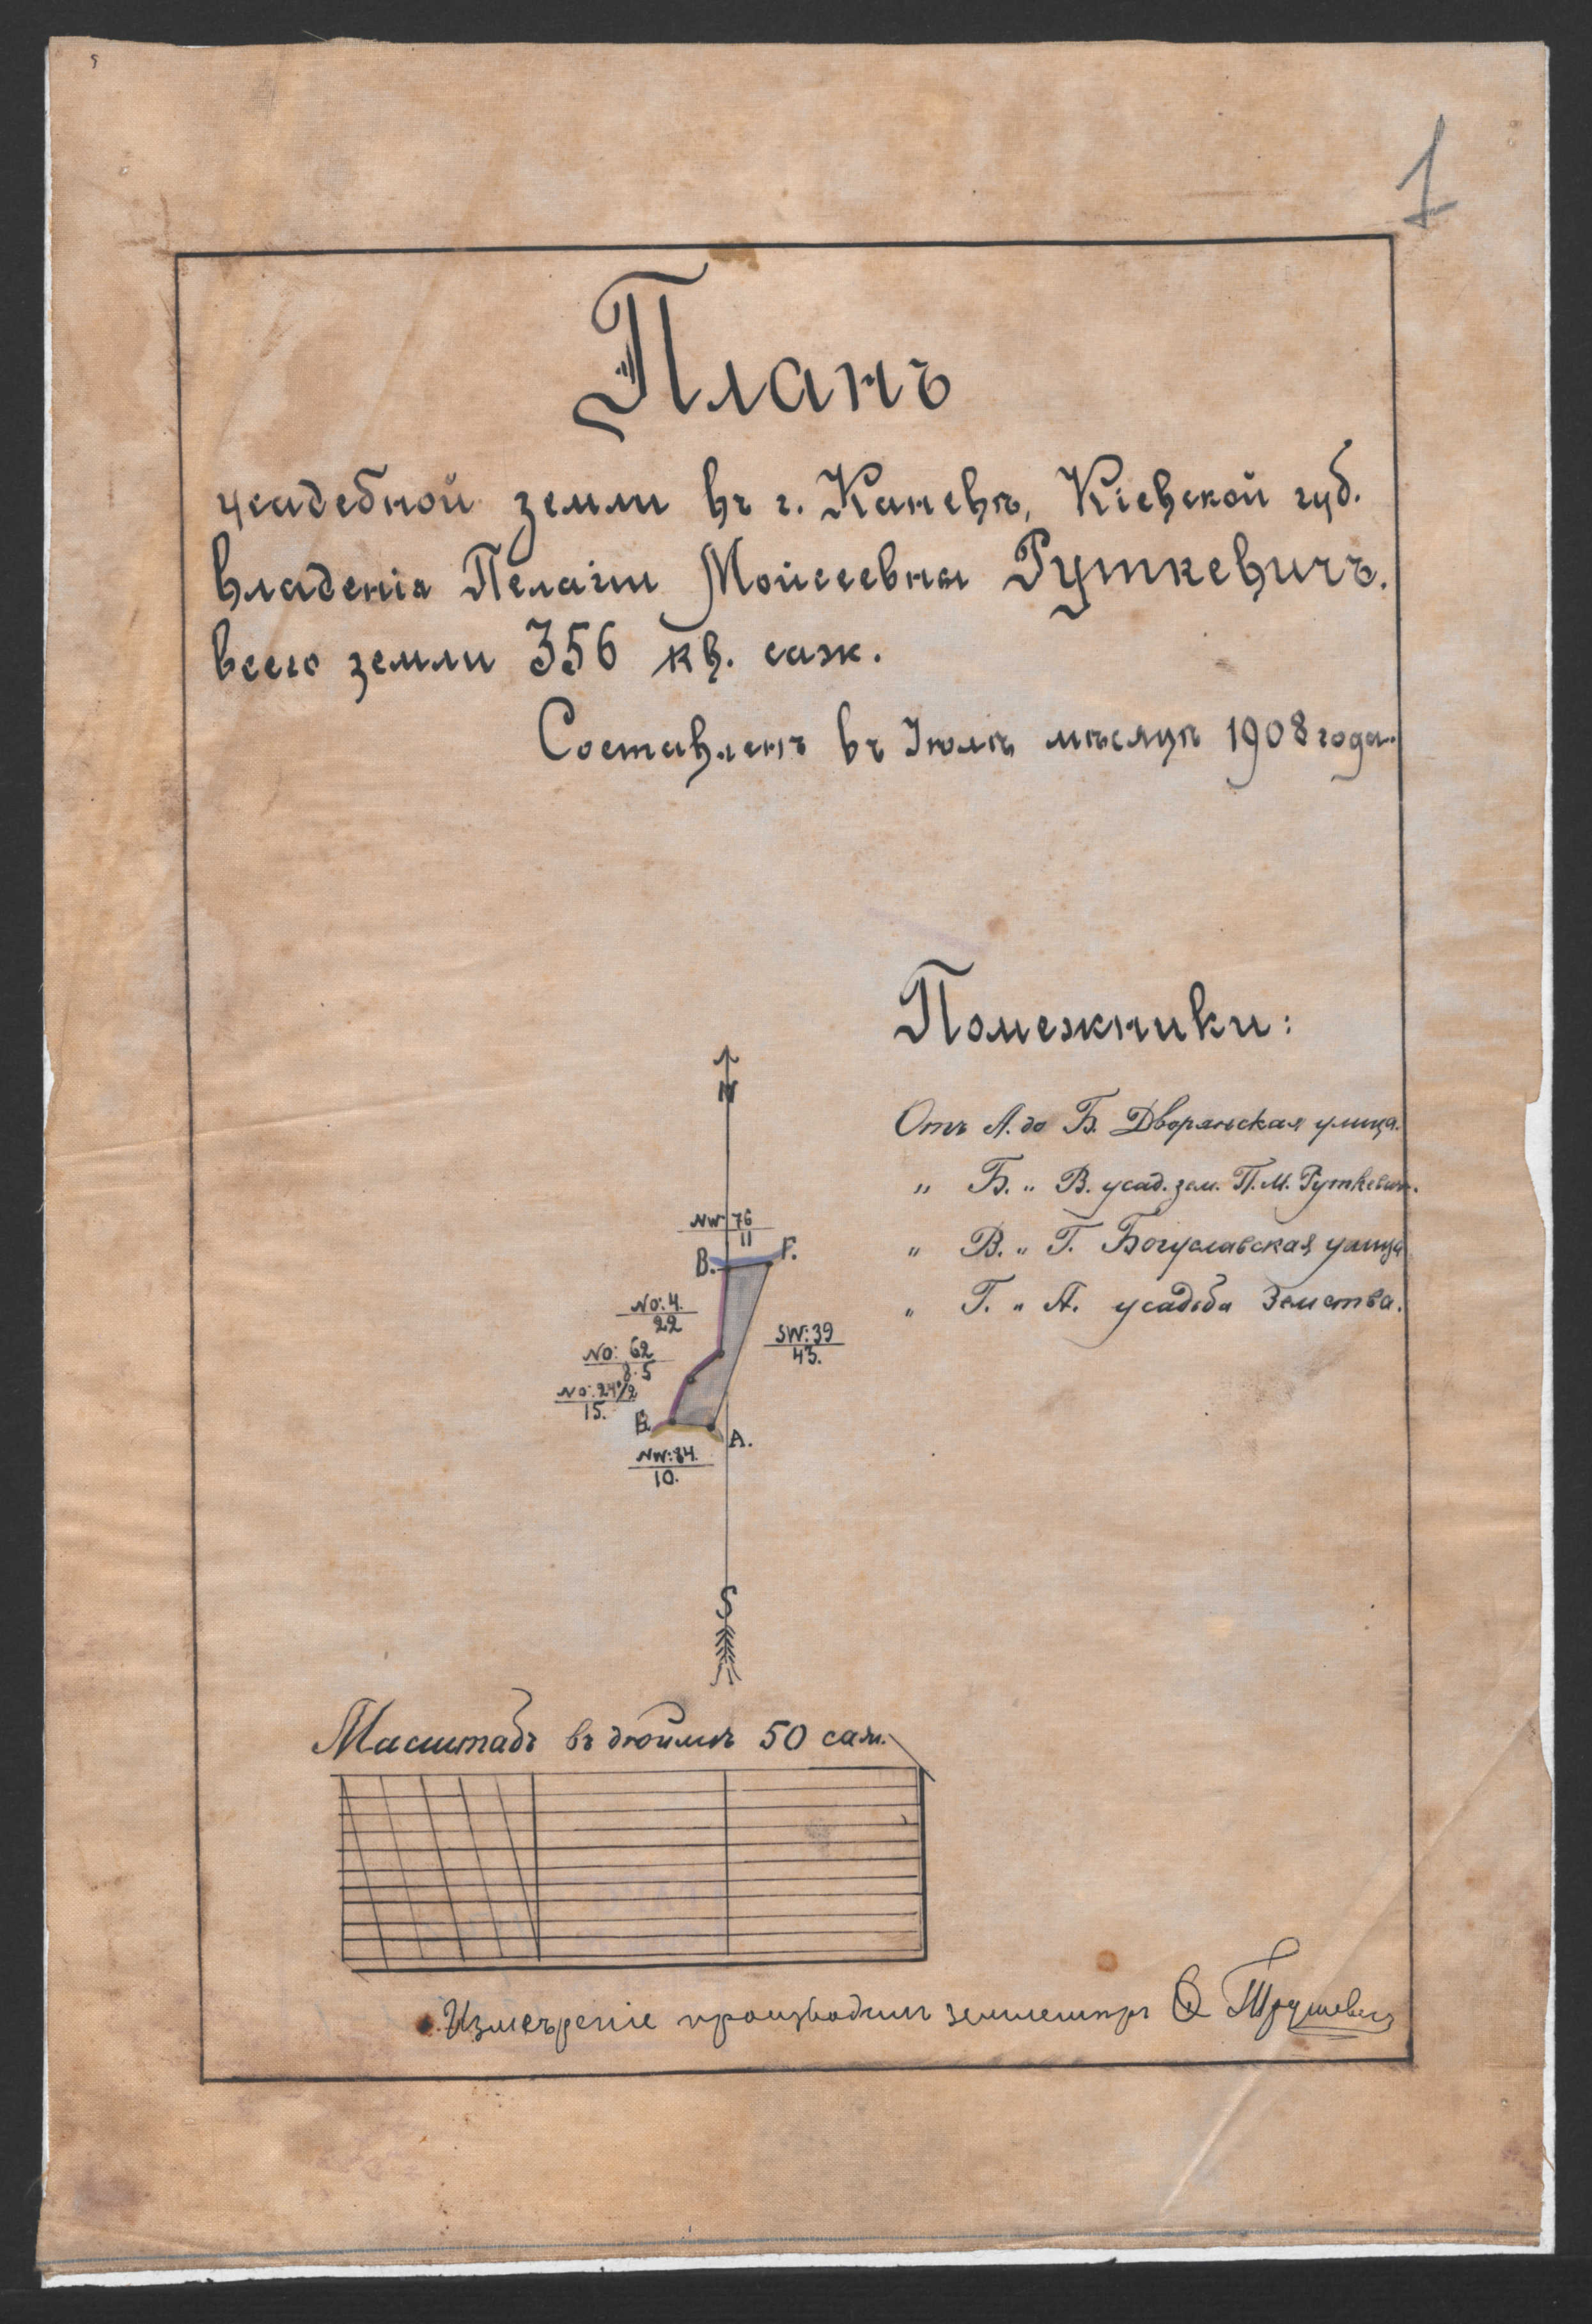 1
Планъ
усадебной земли въ г. Каневѣ, Кіевской губ.
владенія Пелагіи Мойсеевны Руткевичъ.
всего земли 356 кв. саж.
Составленъ въ Іюлѣ мѣсяцѣ 1908 года.
Помежники:
Отъ А. до Б. Дворянская улица.
" Б. " В. усад. зем. П. М. Руткевич.
" В. " Г. Богуславская улица
" Г. " А. усадьба Земства.
N
NW: 76
11
В. Г.
NO: 4.
22
SW: 39
43.
NO: 62
8.5
NO: 24 1/2
15.
Б. А.
NW: 84.
10.
S
Масштабъ въ дюймѣ 50 саж.
Измѣреніе производилъ землемѣръ